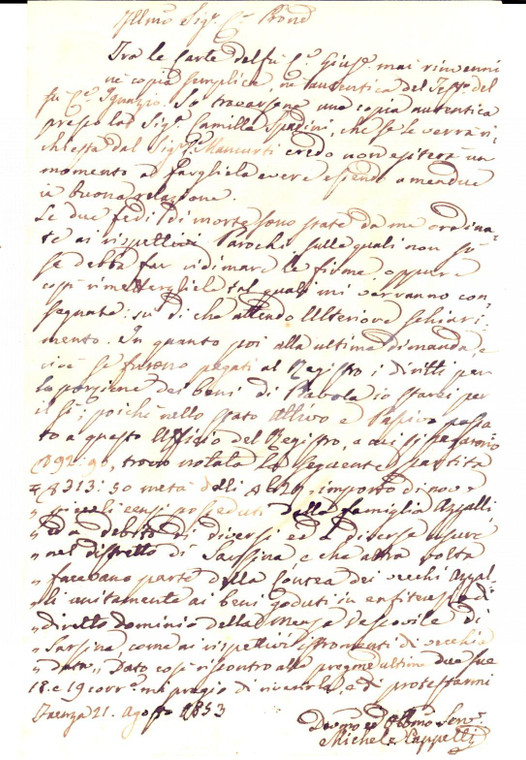 Illmo Sigr. Cte Bond
Tra le Carte del fu Cte Giusepe mai rinvenni
nè copia semplice, nè autentica del Testo del
fu Cte Ignazio. So trovarsene una copia autentica
presso la Sigra Camilla Spadini, che se le verrà ri-
chiesta dal Sigr. Mancurti credo non esiterà un
momento a fargliela avere essendo amendue
in buona relazione.
Le due fedi di morte sono state da me ordina-
te ai rispettivi Parochi, sulle quali non so
se debba far vidimare le firme, oppure
così rimettergliele tal quali mi verranno con-
segnate: su di che attendo Ulteriore schiari-
mento. In quanto poi alla ultima dimanda, e
cioè se furono pagati al Registro i diritti per
la porzione dei beni di io starei per
il sì; poichè nello stato Attivo e Passivo passa-
to a questo Uffizio del Registro, a cui si pagarono
92:90, trovo notata la seguente partita
313:50 metà delli importo di nove
piccoli censi posseduti dalla famiglia Azzalli
ed a debito di diversi ed a diverse misure
nel distretto di Sarsina e che altra volta
facevano parte della Contea dei vecchi Azzal-
li unitamente ai beni goduti in enfiteusi di
diretto Dominio della Mensa Vescovile di
Sarsina come ai rispettivi istromenti di vecchia
data. Dato così riscontro alle pregme ultime due sue
18. e 19 corre. mi pregio di riverirla, e di protestarmi
Faenza 21. Agosto 1853
Devmo ed Obbmo Serv.
Michele Cappelli